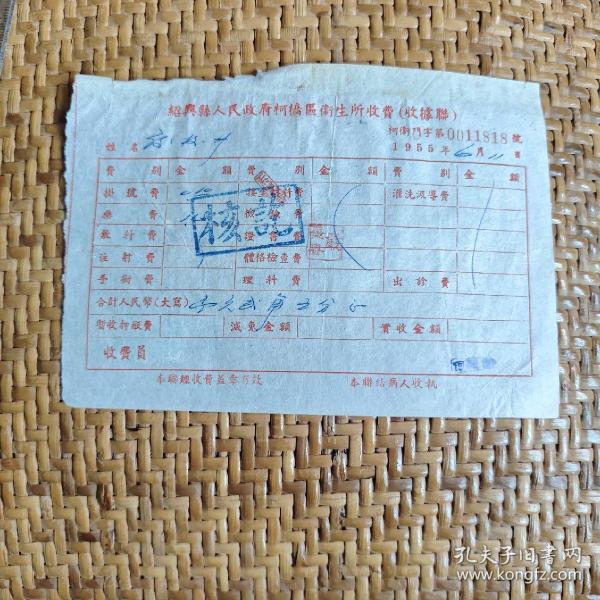 紹興縣人民政府柯橋區衛生所收費(收據聯)
柯衛門字第0011818號
姓名
1955年6月11日
費別 金額 費別 金額 費別 金額
掛號費 接生材料費 灌洗洩導費
藥費 檢驗費
敷料費 證書費
注射費 體格檢查費
手術費 理料費 出診費
核訖
合計人民幣(大寫) 貳角五分正
暫收押瓶費 減免金額 實收金額
收費員
本聯經收費蓋章有效 本聯給病人收執
孔夫子旧書网
www.kongfz.com